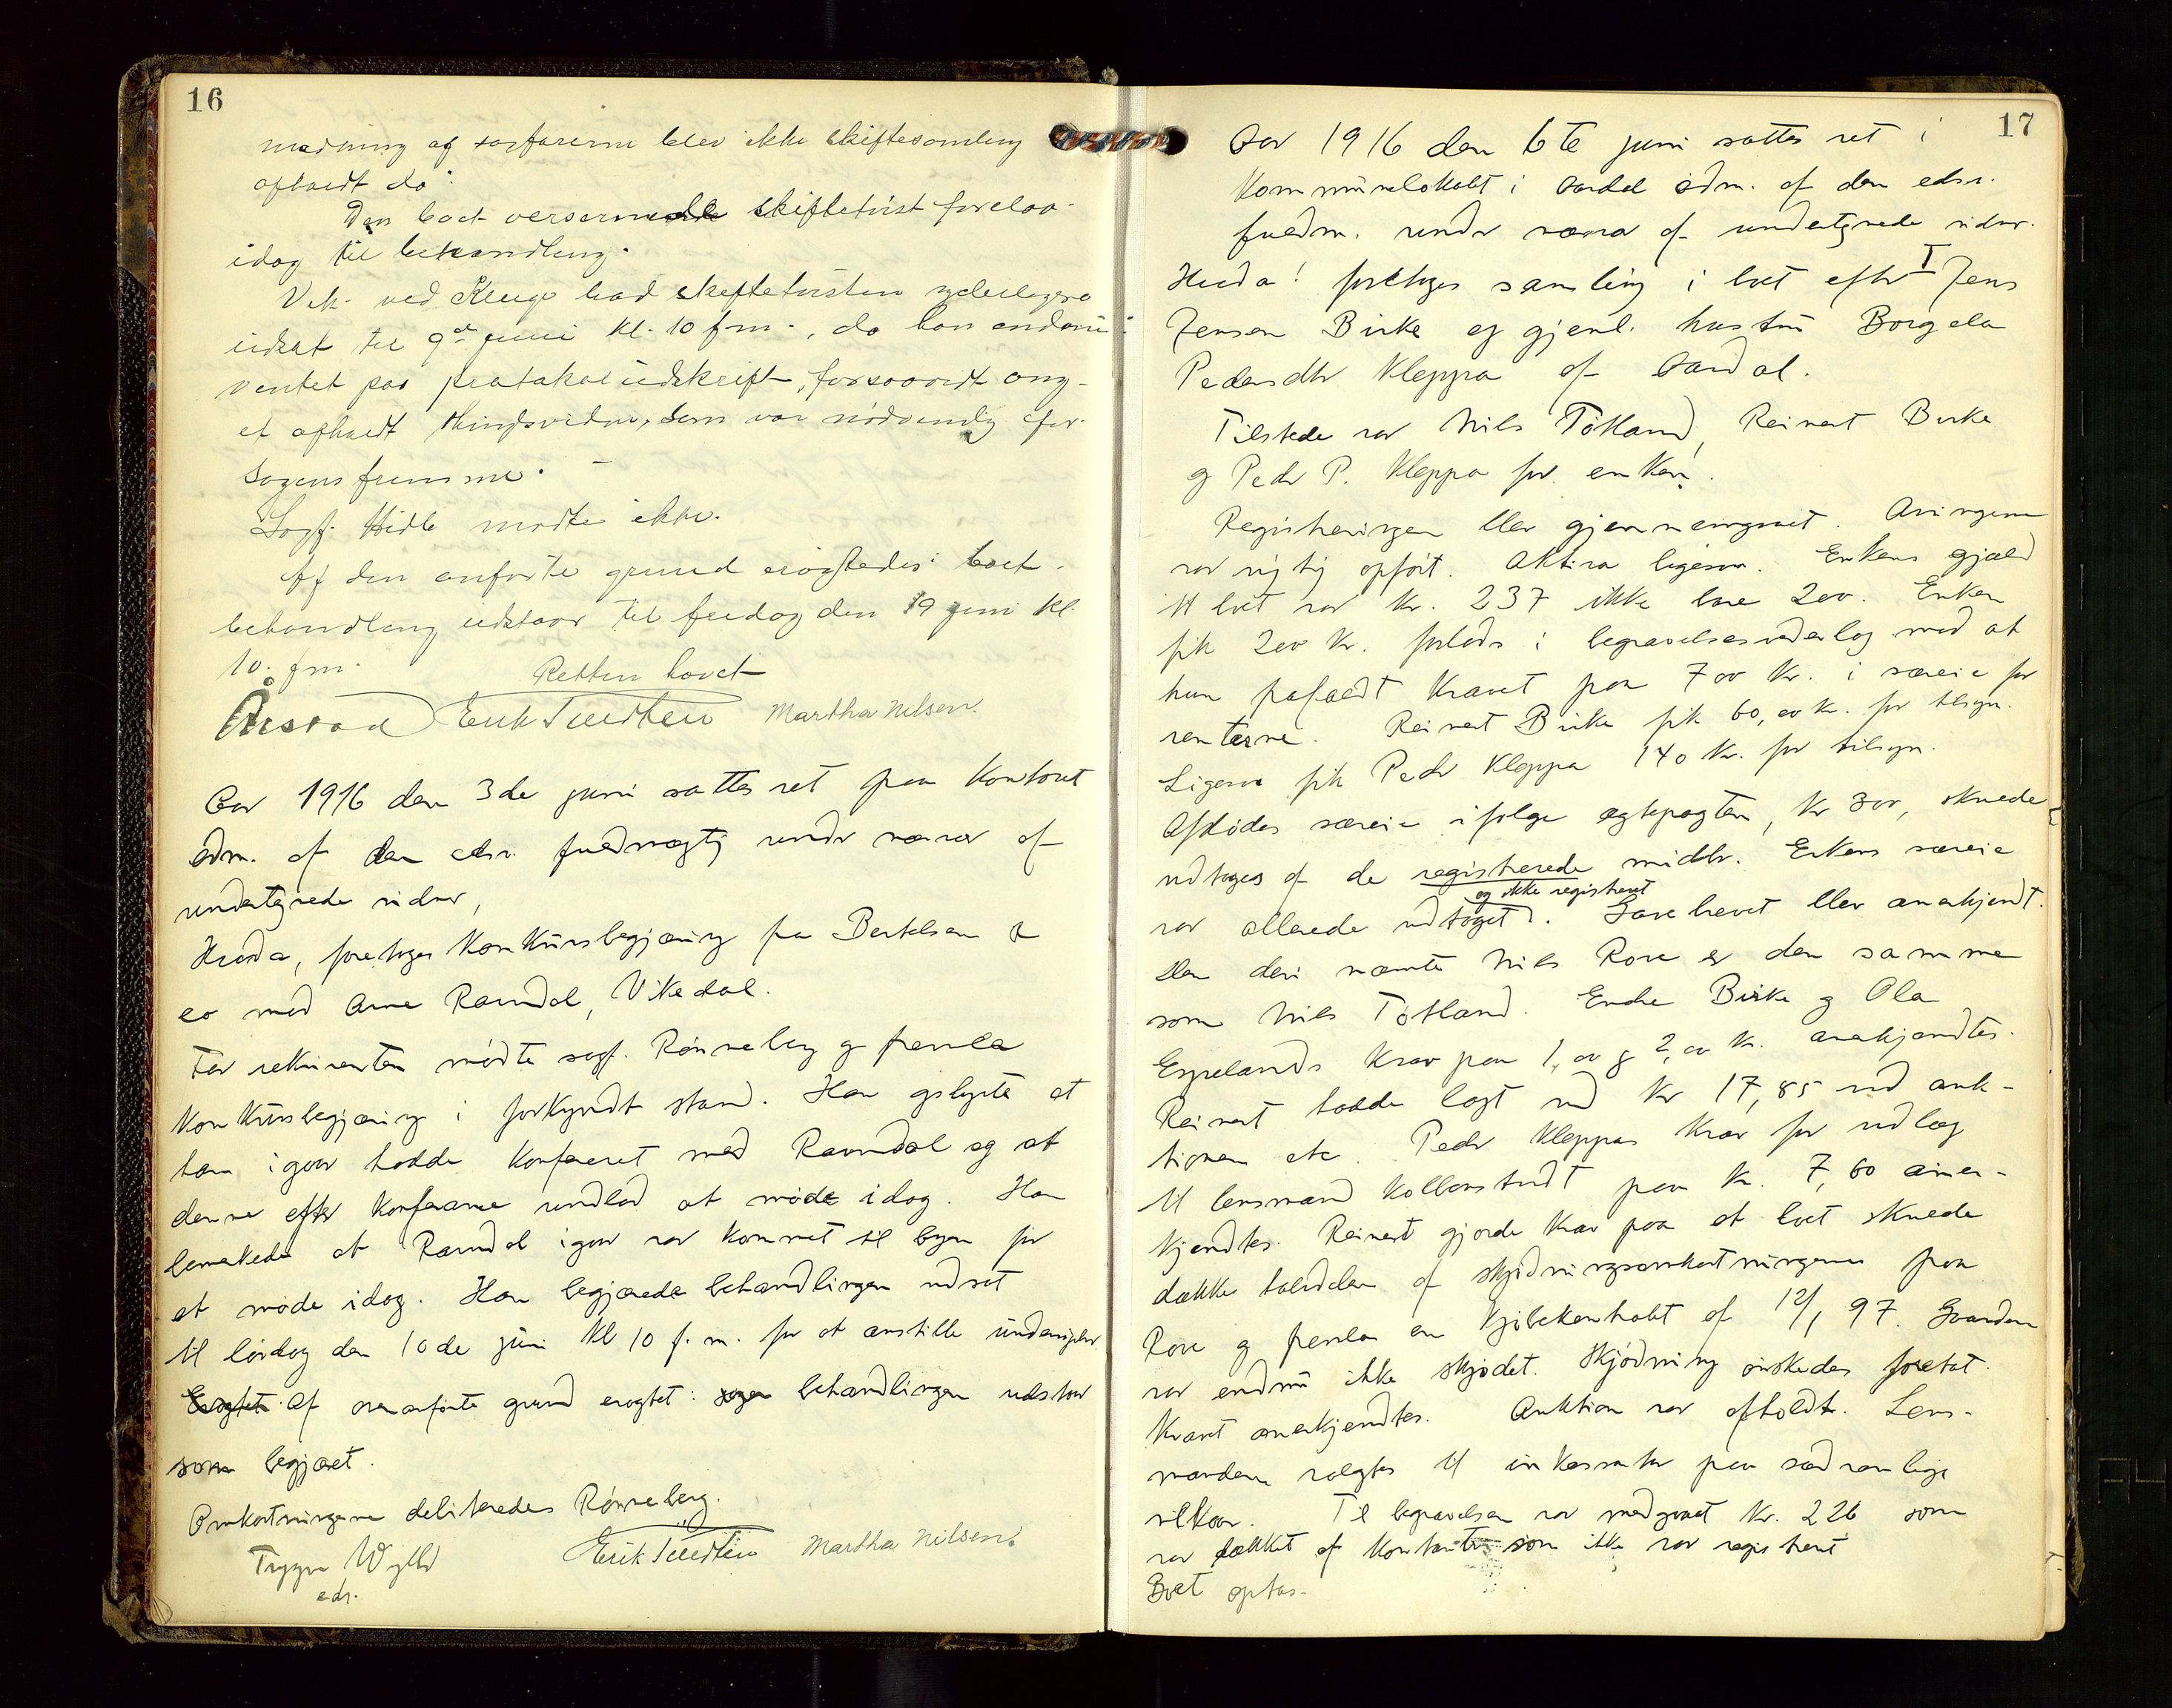 16
medning af sagførerne blev ikke skiftesamling
afholdt da.
Den boet verserende skiftetvist forelaa
idag til behandling.
Vek. ved Kluge bad skiftetvisten yderligere
udsat til 9de juni kl. 10 fm., da han endnu
ventet paa protokoludskrift, forsaavidt ang.
et afholdt thingsvidne, som var nødvendig for
sagens fremme.
Sagf. Hidle mødte ikke.
Af den anførte grund eragtedes: boet-
behandling udstaar til fredag den 19 juni kl.
10. fm.
Retten hævet
Årstad Erik Tuedten Martha Nilsen.
Aar 1916 den 3de juni sattes ret paa kontoret
adm. af den edsv. fuldmægtig under nærvær af
undertegnede vidner,
Hvorda, foretoges konkursbegjæring fra Bertelsen &
co mod Arne Ravndal, Vikedal.
For rekvirenten mødte sagf. Rønneberg og fremla
konkursbegjæring i forkyndt stand. Han oplyste at
han igaar hadde konfereret med Ravndal og at
denne efter konferanse undlod at møde idag. Han
bemerkede at Ravndal igaar var kommet til byen for
at møde idag. Han begjærede behandlingen udsat
til lørdag den 10de juni kl 10 f.m. for at anstille undersøgelser
Eragtet Af ovenanførte grund eragtet: sagen behandlingen udstaar
som begjæret.
Omkostningerne debiteredes Rønneberg.
Trygve Wyller Erik Tuedten Martha Nilsen.
edsv.
17
Aar 1916 den 6te juni sattes ret i
Kommunelokalet i Aardal adm. af den edsv.
fuldm. under nærvær af undertegnede vidner.
Hvorda! foretoges samling i boet efter I Jens
Jensen Birke og gjenl. hustru Borgela
Pedersdtr Kleppa af Aardal.
Tilstede var Nils Tøtland, Reinert Birke
og Peder P. Kleppa for enken.
Registreringen blev gjennemgaaet. Arvingerne
var rigtig opført. Aktiva ligesaa. Enkens gjæld
til boet var kr. 237 ikke bare 200. Enken
fik 200 kr. forlods i begravelsesvederlag mod at
hun frafaldt kravet paa 700 kr. i særeie for
renterne. Reinert Birke fik 60,00 kr. for tilsyn.
Ligesaa fik Peder Kleppa 140 kr. for tilsyn.
Afdødes særeie ifølge ægtepagten, kr 300, skulde
udtages af de registrerede midler. Enkens særeie
og ikke registreret
var allerede udtaget. Gavebrevet blev anerkjendt.
Den deri nævnte Nils Rore er den samme
som Nils Tøtland. Endre Birke og Ola
Espelands krav paa 1,00 og 2,00 kr. anerkjendtes.
Reinert hadde lagt ud kr 17,85 ved auk-
tionen etc. Peder Kleppas krav for udlæg
til lensmand Kolbenstvedt paa kr. 7,60 aner-
kjendtes. Reinert gjorde krav paa at boet skulde
dække halvdelen af skjødningsomkostningerne paa
Rore og fremla en kjøbekontrakt af 12/1 97. Gaarden
var endnu ikke skjødet. Skjødning ønskedes foretat.
Kravet anerkjendtes. Auktion var afholdt. Lens-
manden valgtes til inkassator paa sædvanlige
vilkaar. Til begravelsen var medgaaet kr. 226 som
var dækket af kontanter som ikke var registreret
Boet optas.